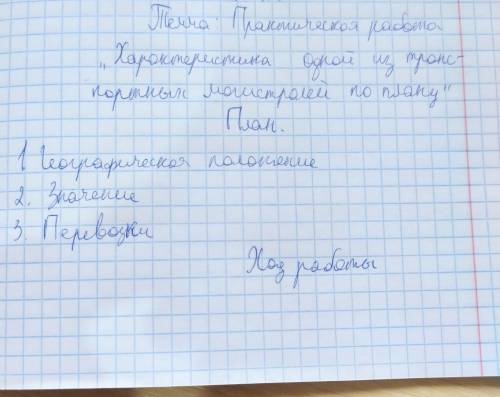 Тема: Практическая работа
„Характеристика одной из транс-
портных магистралей по плану"
План.
1 Географическая положение
2. Значение
3. Перевозки
Ход работы